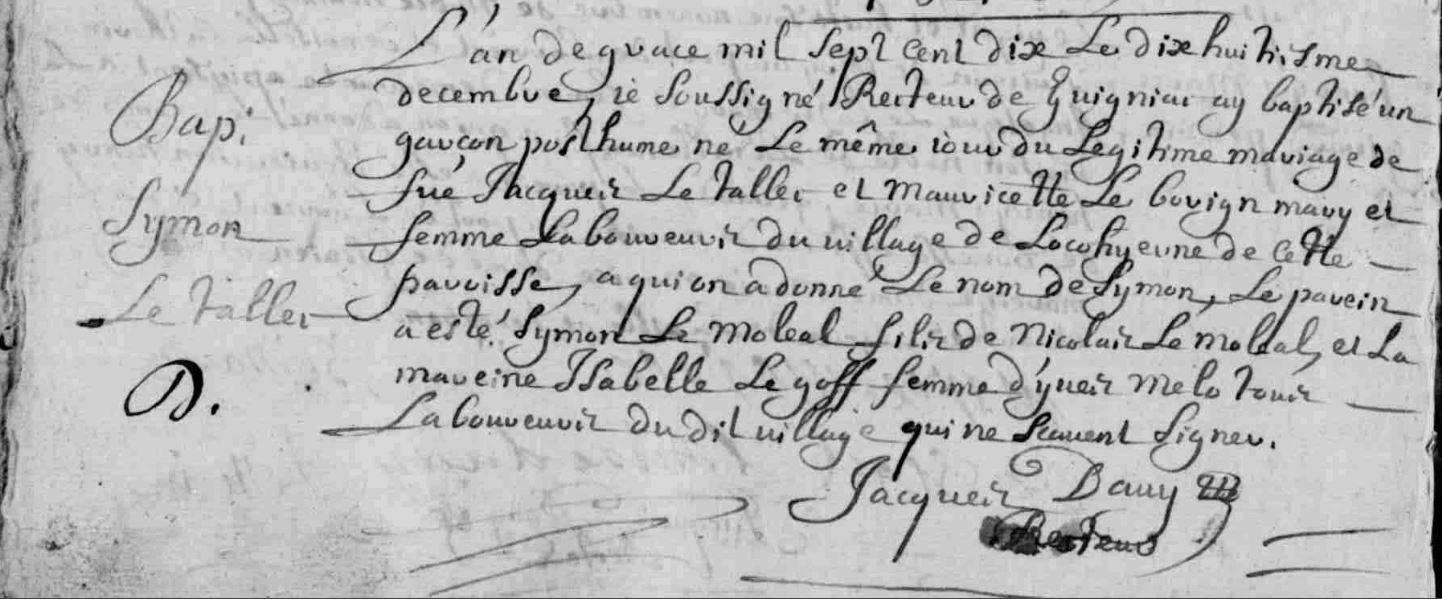 L'an de grace mil sept cent dix Le dixhuitisme
Bap.
decembre, ie soussigné Recteur de Guigniac ay baptisé un
garçon posthume né Le même iour du Legitime mariage de
fué Jacques Le taller et Mauricette Le bovign mary et
Symon
femme Laboureurs du village de Locohyerne de cette
Le taller
paroisse, a qui on a donné Le nom de Symon, Le parein
a esté Symon Le moleal filis de Nicolais Le moleal, et La
mareine Isabelle Le goff femme d'yues melo tous
D.
Laboureurs du dit village qui ne scauent signer.
Jacques Dauy
Recteur